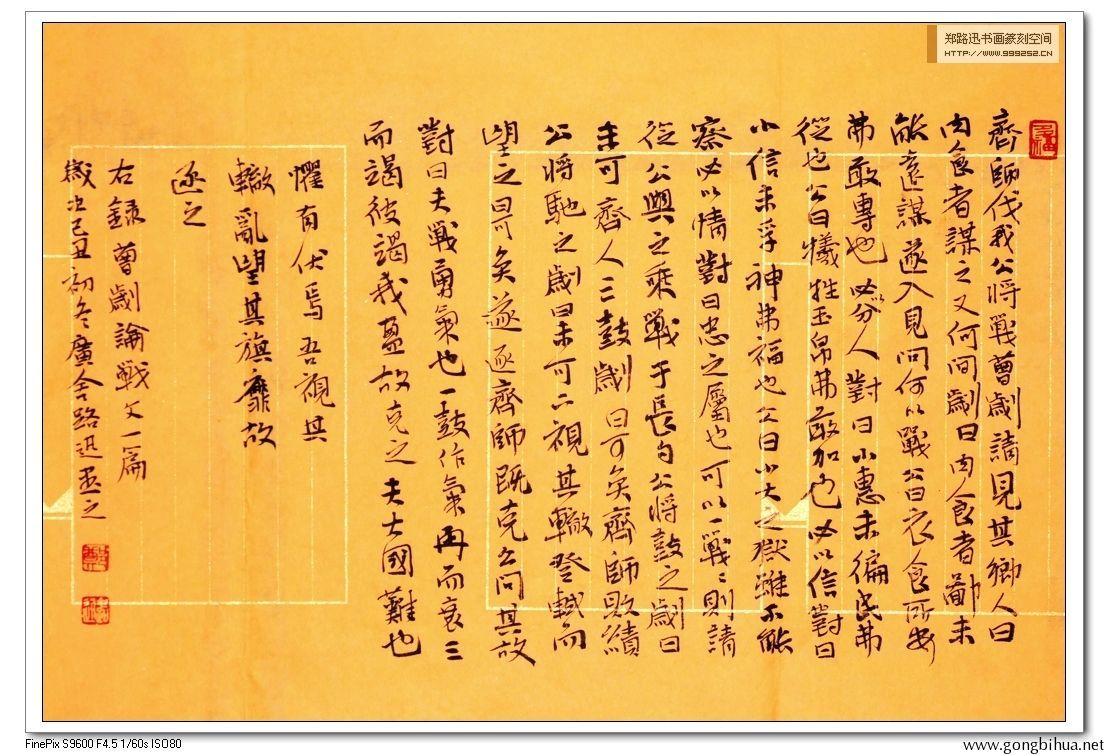 郑路迅书画篆刻空间
HTTP://WWW.999252.CN
齊師伐我公將戰曹劌請見其鄉人曰
肉食者謀之又何間劌曰肉食者鄙未
能遠謀遂入見問何以戰公曰衣食所安
弗敢專也必以分人對曰小惠未徧民弗
從也公曰犧牲玉帛弗敢加也必以信對曰
小信未孚神弗福也公曰小大之獄雖不能
察必以情對曰忠之屬也可以一戰〻則請
從公與之乘戰于長勺公將鼓之劌曰
未可齊人三鼓劌曰可矣齊師敗績
公將馳之劌曰未可下視其轍登軾而
望之曰可矣遂逐齊師既克公問其故
對曰夫戰勇氣也一鼓作氣再而衰三
而竭彼竭我盈故克之夫大國難也
懼有伏焉吾視其
轍亂望其旗靡故
逐之
右錄曹劌論戰文一篇
歲次己丑初冬廣舍路迅書之
FinePix S9600 F4.5 1/60s ISO80
www.gongbihua.net